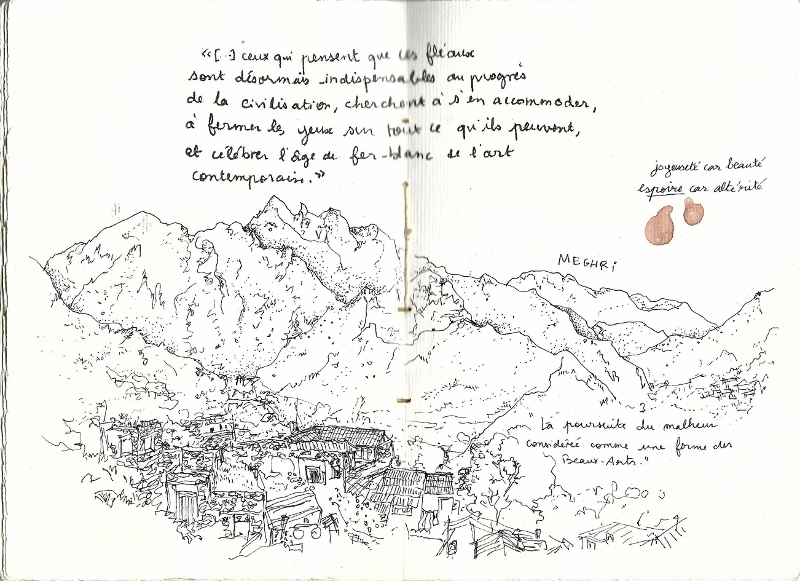 «[..] ceux qui pensent que ces fléaux
sont désormais indispensables au progrès
de la civilisation, cherchent à s'en accommoder,
à fermer les yeux sur tout ce qu'ils peuvent,
et célébrer l'âge de fer-blanc de l'art
contemporain.»
joyeuseté car beauté
espoire car altérité
MEGHRI
"La poursuite du malheur
considéré comme une forme des
Beaux-Arts."